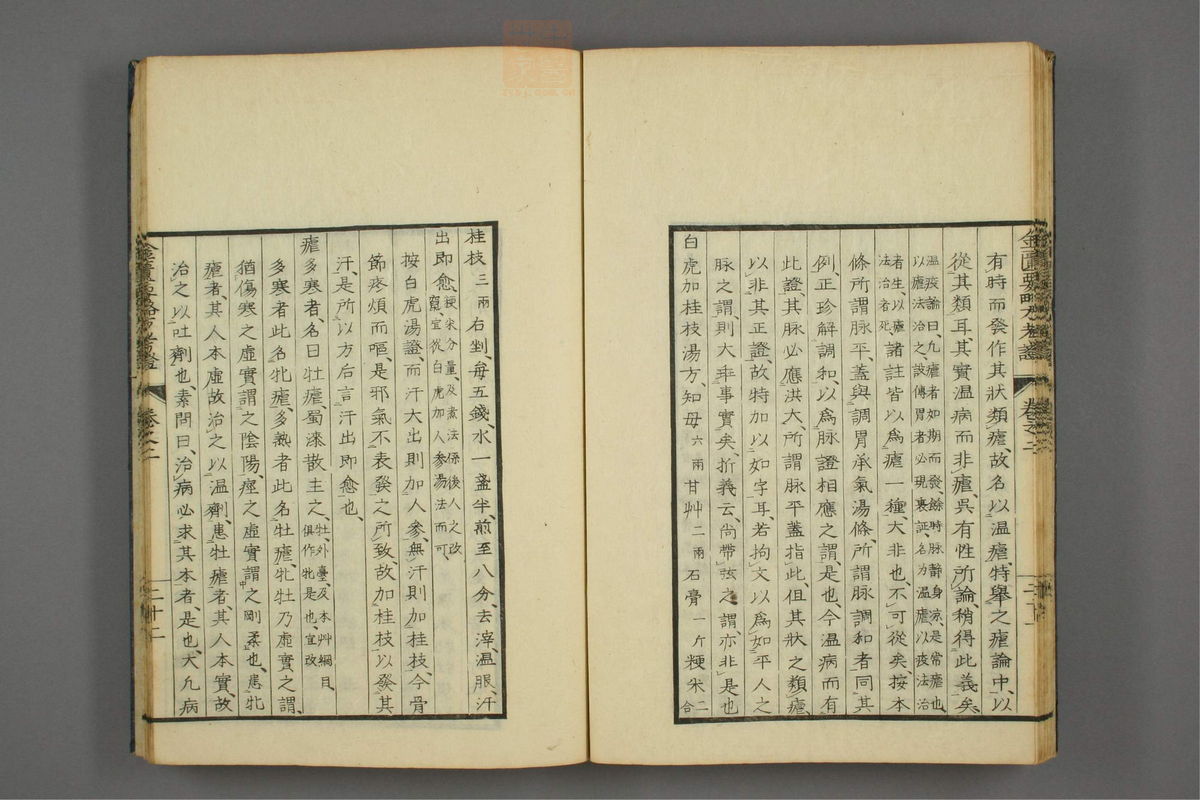 金匱要略方考證 卷之二
有時而發作其狀類瘧、故名以温瘧、特舉之瘧論中、以
從其類耳、其實温病而非瘧、呉有性所論、稍得此義矣、
温疫論曰、凡瘧者如期而發、餘時脉靜身凉、是常瘧也、以瘧法治之、設傳胃者、必現裏証、名爲温瘧、以疫法治
者生、以瘧法治者死、諸註皆以爲瘧一種、大非也、不可從矣、按本
條所謂脉平、蓋與調胃承氣湯條、所謂脉調和者同其
例、正珍解調和、以爲脉證相應之謂是也、今温病而有
此證、其脉必應洪大、所謂脉平蓋指此、但其狀之類瘧、
以非其正證、故特加以如字耳、若拘文以爲如平人之
脉之謂、則大乖事實矣、折義云、尚帶弦之謂、亦非是也
白虎加桂枝湯方、知母六兩甘艸二兩石膏一斤粳米二合
桂枝三兩右剉、毎五錢、水一盞半、煎至八分、去滓、温服、汗
出即愈、粳米分量、及煮法、係後人之改竄、宜從白虎加人參湯法而可、
按白虎湯證、而汗大出則加人參、無汗則加桂枝、今骨
節疼煩而嘔、是邪氣不表發之所致、故加桂枝以發其
汗、是所以方后言汗出即愈也、
瘧多寒者、名曰牡瘧、蜀漆散主之、牡、外臺、及本艸綱目、俱作牝是也、宜改
多寒者此名牝瘧、多熱者此名牡瘧、牝牡乃虛實之謂、
猶傷寒之虛實謂之陰陽、痙之虛實謂之剛柔也、患牝
瘧者、其人本虛、故治之以温劑、患牡瘧者、其人本實、故
治之以吐劑也、素問曰、治病必求其本者、是也、大凡病
金匱要略方考證 卷之二 二十二